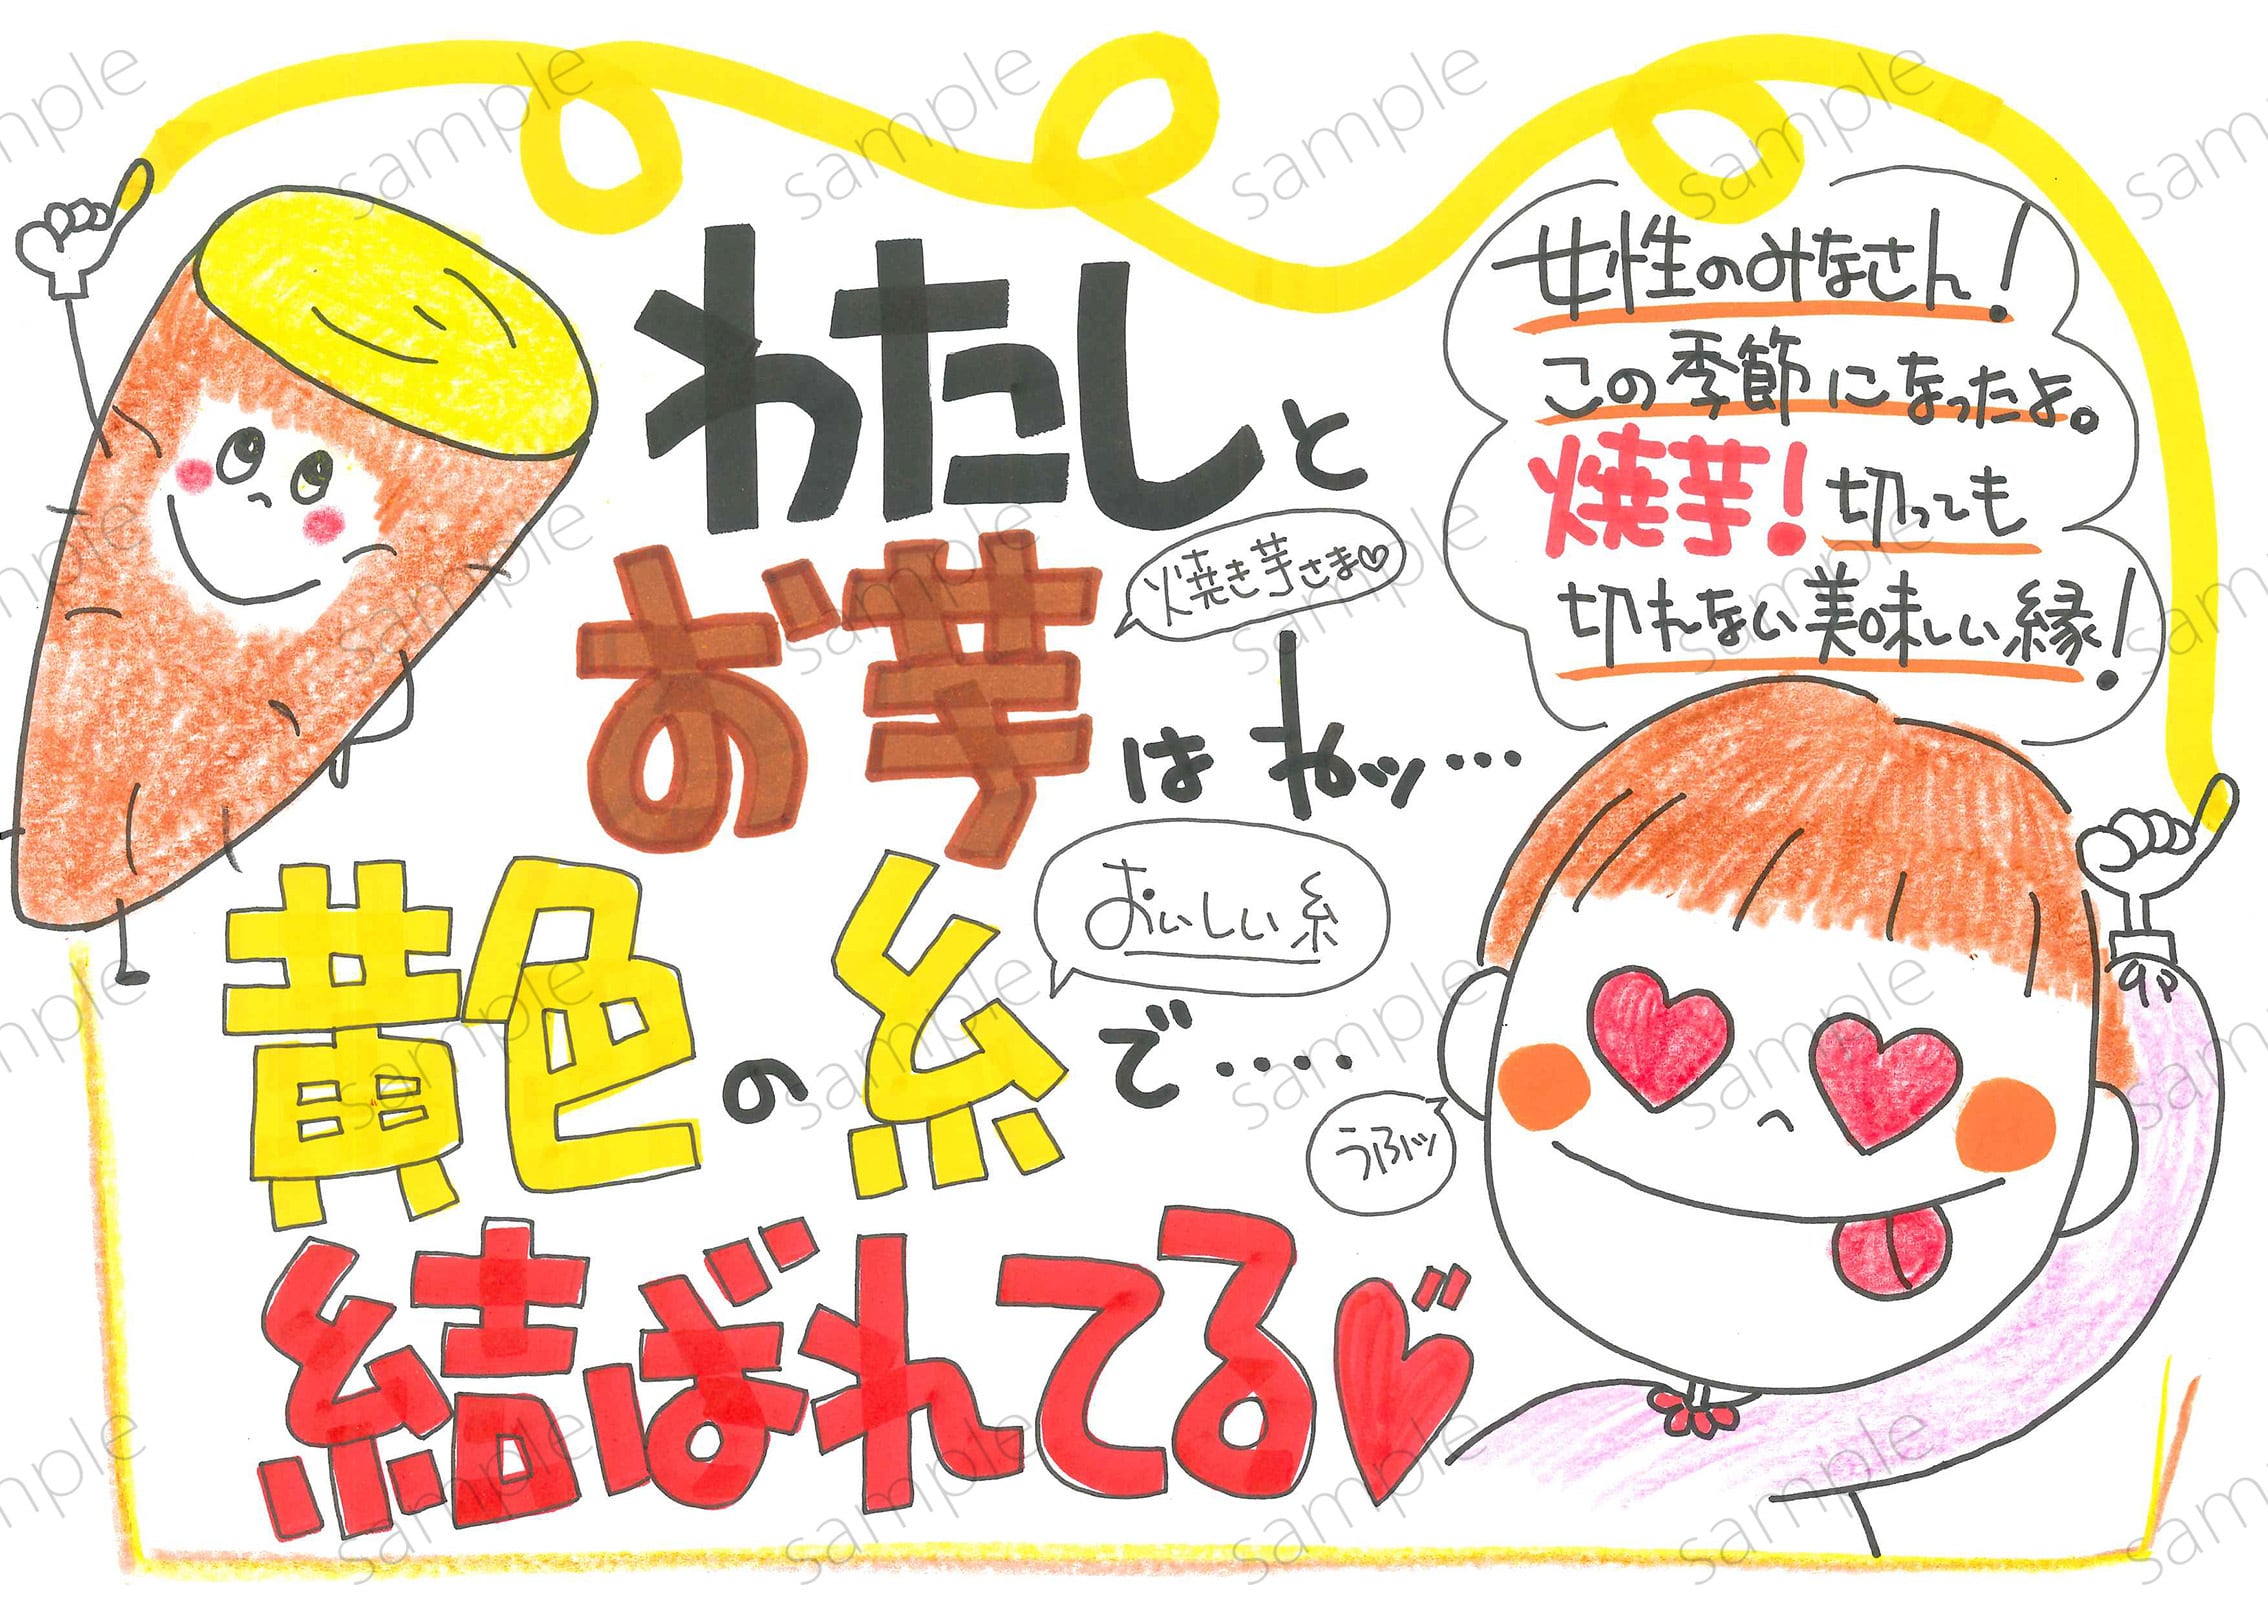 女性のみなさん!
この季節になったよ。
焼芋!切っても
切れない美味しい縁!
わたしと
お芋はねッ…
焼き芋さま♡
黄色の糸で‥‥
おいしい糸
結ばれてる♥
うふッ
sample